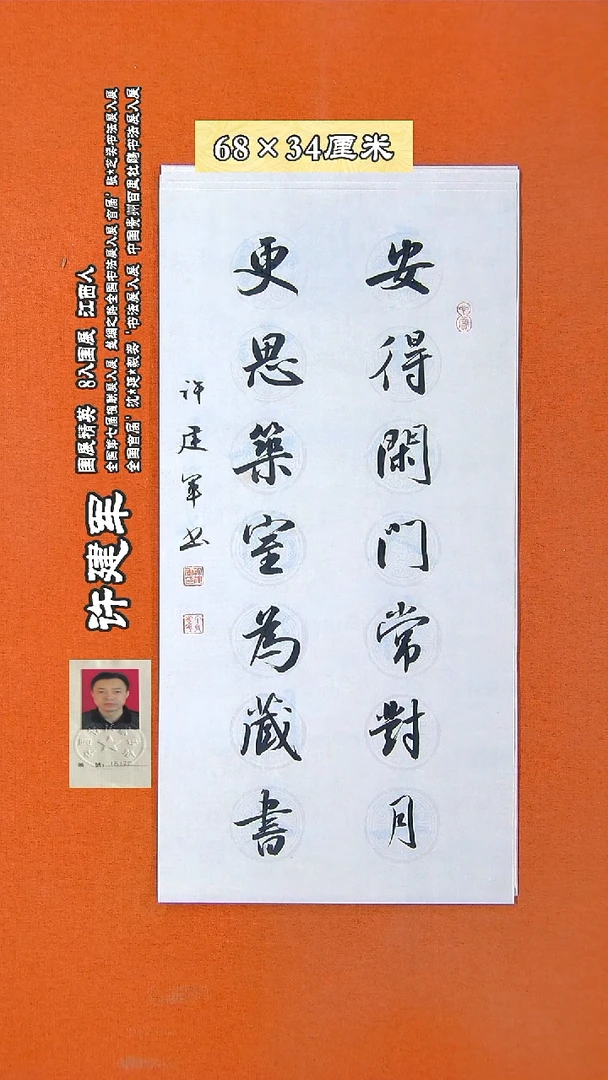 68×34厘米
安得閑門常對月
更思築室為藏書
许建军书
许建军
国展精英 8入国展 江西人
全国第七届楹联展入展 丝绸之路全国书法展入展 首届‘张★芝奖书法展入展
全国首届‘沈★延★毅奖‘书法展入展 中国贵州百里杜鹃书法展入展